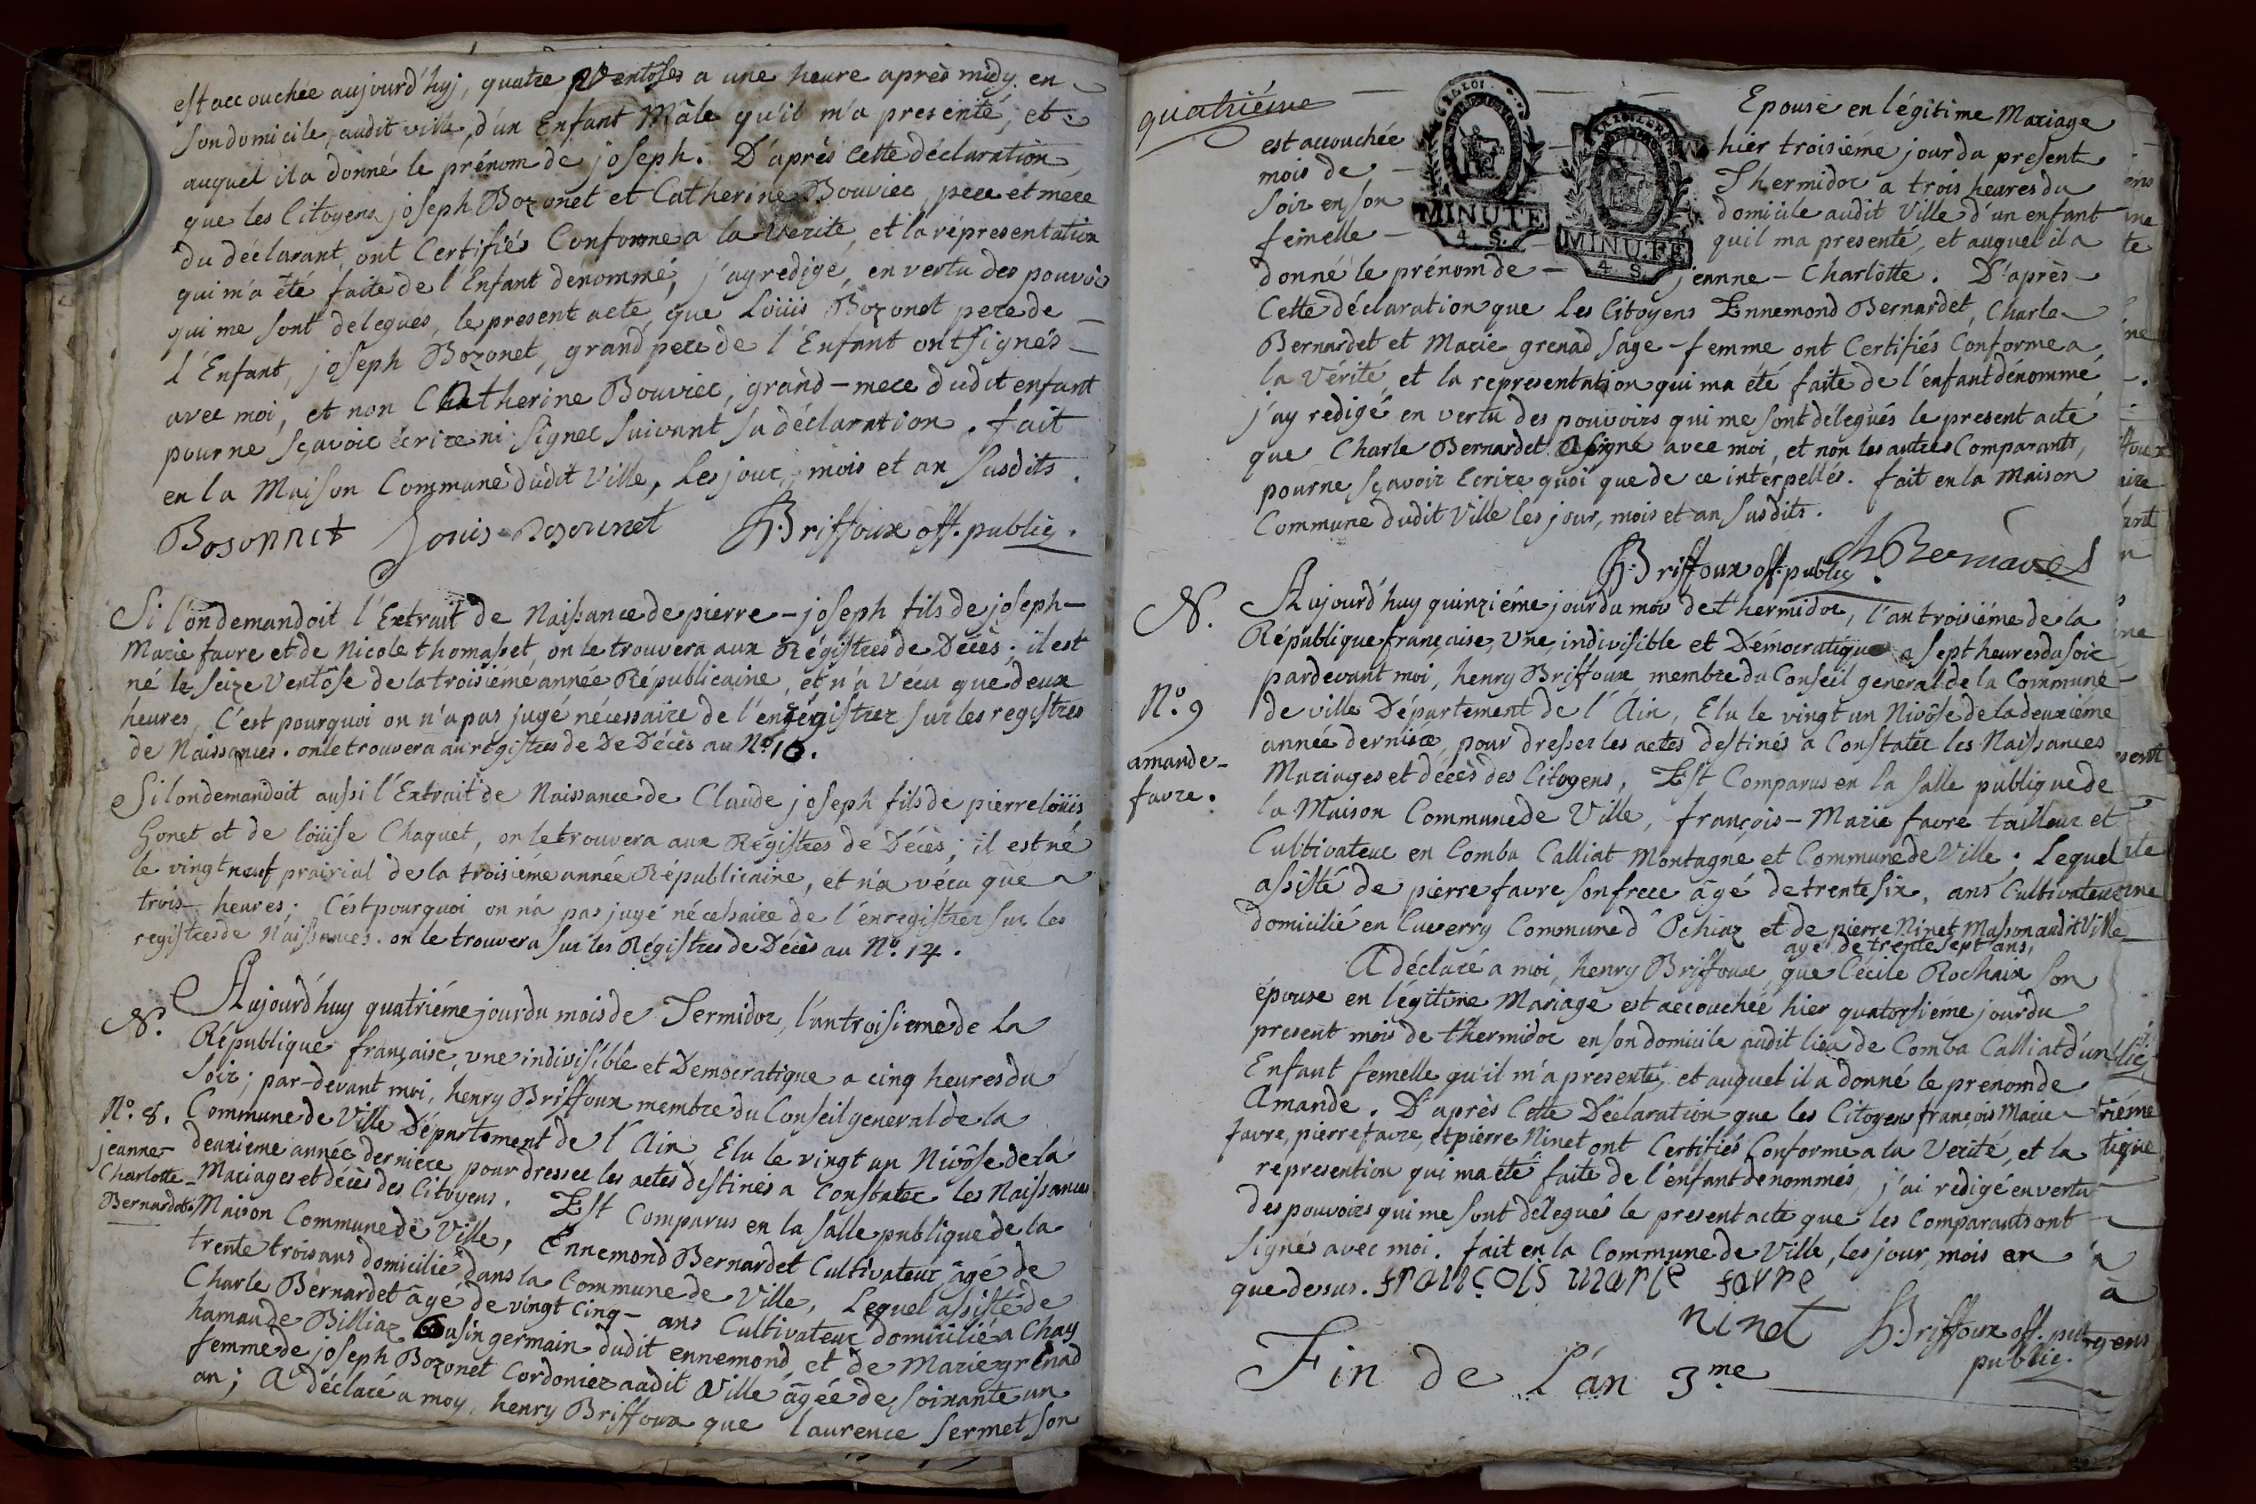 est accouchée aujourd'huj, quatre Ventoses a une heure après midy en
son domicile, audit ville, d'un Enfant Mâle qu'il m'a presenté, et
auquel il a donné le prénom de joseph. D'après cette déclaration,
que les Citoyens joseph Bozonet et Catherine Bouvier, pere et mere
du déclarant, ont Certifiés Conforme a la Verité, et la répresentation
qui m'a été faite de l'Enfant denommé, j'ay redigé, en vertu des pouvoir
qui me sont delegués, le present acte, que Loüis Bozonet pere de
l'Enfant, joseph Bozonet, grand pere de l'Enfant ont signés
avec moi, et non Catherine Bouvier, grand-mere dudit enfant
pour ne sçavoir écrire ni signer suivant sa déclaration. fait
en la Maison Commune dudit Ville, les jour, mois et an susdits.
Bosonnet Louis Bozonet H. Briffoux off. public.
Si l'on demandoit l'Extrait de Naissance de pierre-joseph fils de joseph-
Marie favre et de Nicole thomasset, on le trouvera aux Régistres de Décès; il est
né le seize Ventôse de la troisiéme année Républicaine, et n'a Vécu que deux
heures, C'est pourquoi on n'a pas jugé nécessaire de l'enrégistrer sur les registres
de Naissances. on le trouvera au régistres de De Décès au No. 10.
Si l'on demandoit aussi l'Extrait de Naissance de Claude joseph fils de pierre loüis
Gonet et de loüise Chaquet, on le trouvera aux Régistres de Décès; il est né
le vingt neuf prairial de la troisiéme année Républicaine, et n'a vécu que
trois heures; C'est pourquoi on n'a pas jugé nécessaire de l'enregistrer sur les
registres de Naissances. on le trouvera sur les Régistres de Décès au No. 14.
N. Aujourd'huy quatriéme jour du mois de Termidor, l'an troisieme de la
République française, une indivisible et Democratique a cinq heures du
soir; par-devant moi, henry Briffoux membre du Conseil general de la
No. 8. Commune de Ville Département de l'Ain, Elu le vingt un Nivôse de la
jeanne- deuxieme année derniere pour dresser les actes destinés a Constater les Naissances
Charlotte- Mariages et décès des Citoyens. Est Comparus en la salle publique de la
Bernardet. Maison Commune de Ville, Ennemond Bernardet Cultivateur âgé de
trente trois ans domicilié dans la Commune de Ville, Lequel assisté de
Charle Bernardet âgé de vingt cinq- ans Cultivateur domicilié a Chay
hamau de Billiaz Cousin germain dudit ennemond, et de Marie grenad
femme de joseph Bozonet Cordonier audit Ville âgée de soixante un
an; A déclaré a moy, henry Briffoux que laurence sermet son
quatriéme
Epouse en légitime Mariage
est accouchée hier troisiéme jour du present
mois de Thermidor a trois heures du
soir en son domicile audit Ville d'un enfant
femelle qu'il ma presenté, et auquel il a
donné le prénom de jeanne-Charlotte. D'après
MINUTE
4 S.
MINUTE
4 S.
Cette déclaration que les Citoyens Ennemond Bernardet, Charle
Bernardet et Marie grenad sage-femme ont Certifiés Conforme a
la Verité, et la representation qui ma été faite de l'enfant dénommé
j'ay redigé en vertu des pouvoirs qui me sont délegués le present acte
que Charle Bernardet a signé avec moi, et non les autres Comparants,
pour ne sçavoir Ecrire quoi que de ce interpellés. fait en la Maison
Commune dudit Ville les jour, mois et an susdits.
H. Briffoux off. public. Ch Bernardet
N. Aujourd'huy quinziéme jour du mois de thermidor, l'an troisiéme de la
République française, Une, indivisible et Démocratique a sept heures du soir
pardevant moi, henry Briffoux membre du Conseil general de la Commune
No. 9 de ville Département de l'Ain, Elu le vingt un Nivôse de la deuxiéme
année derniere, pour dresser les actes destinés a Constater les Naissances
amande- Mariages et décès des Citoyens, Est Comparus en la salle publique de
favre. la Maison Commune de Ville, françois-Marie favre tailleur et
Cultivateur en Comba Calliat Montagne et Commune de Ville; Lequel
assisté de pierre favre son frere âgé de trente six, ans Cultivateur
domicilié en Cuverry Commune d'Ochiaz et de pierre Ninet Masson audit Ville
agé de trente sept ans,
A déclaré a moi, henry Briffoux, que Cécile Rochaix son
épouse en légitime Mariage est accouchée hier quatorsiéme jour du
present mois de thermidor en son domicile audit lieu de Comba Calliat d'un
Enfant femelle qu'il m'a presenté, et auquel il a donné le prenom de
Amande. D'après Cette Déclaration que les Citoyen françois Marie
favre, pierre favre, et pierre Ninet ont Certifiés Conforme a la Verité, et la
represention qui ma été faite de l'enfant denommés, j'ai redigé en vertu
des pouvoirs qui me sont délegués le present acte que les Comparants ont
signés avec moi. fait en la Commune de Ville, les jour, mois en
que dessus. françois marie favre
ninet H. Briffoux off. pub
public.
Fin de L'an 3.me